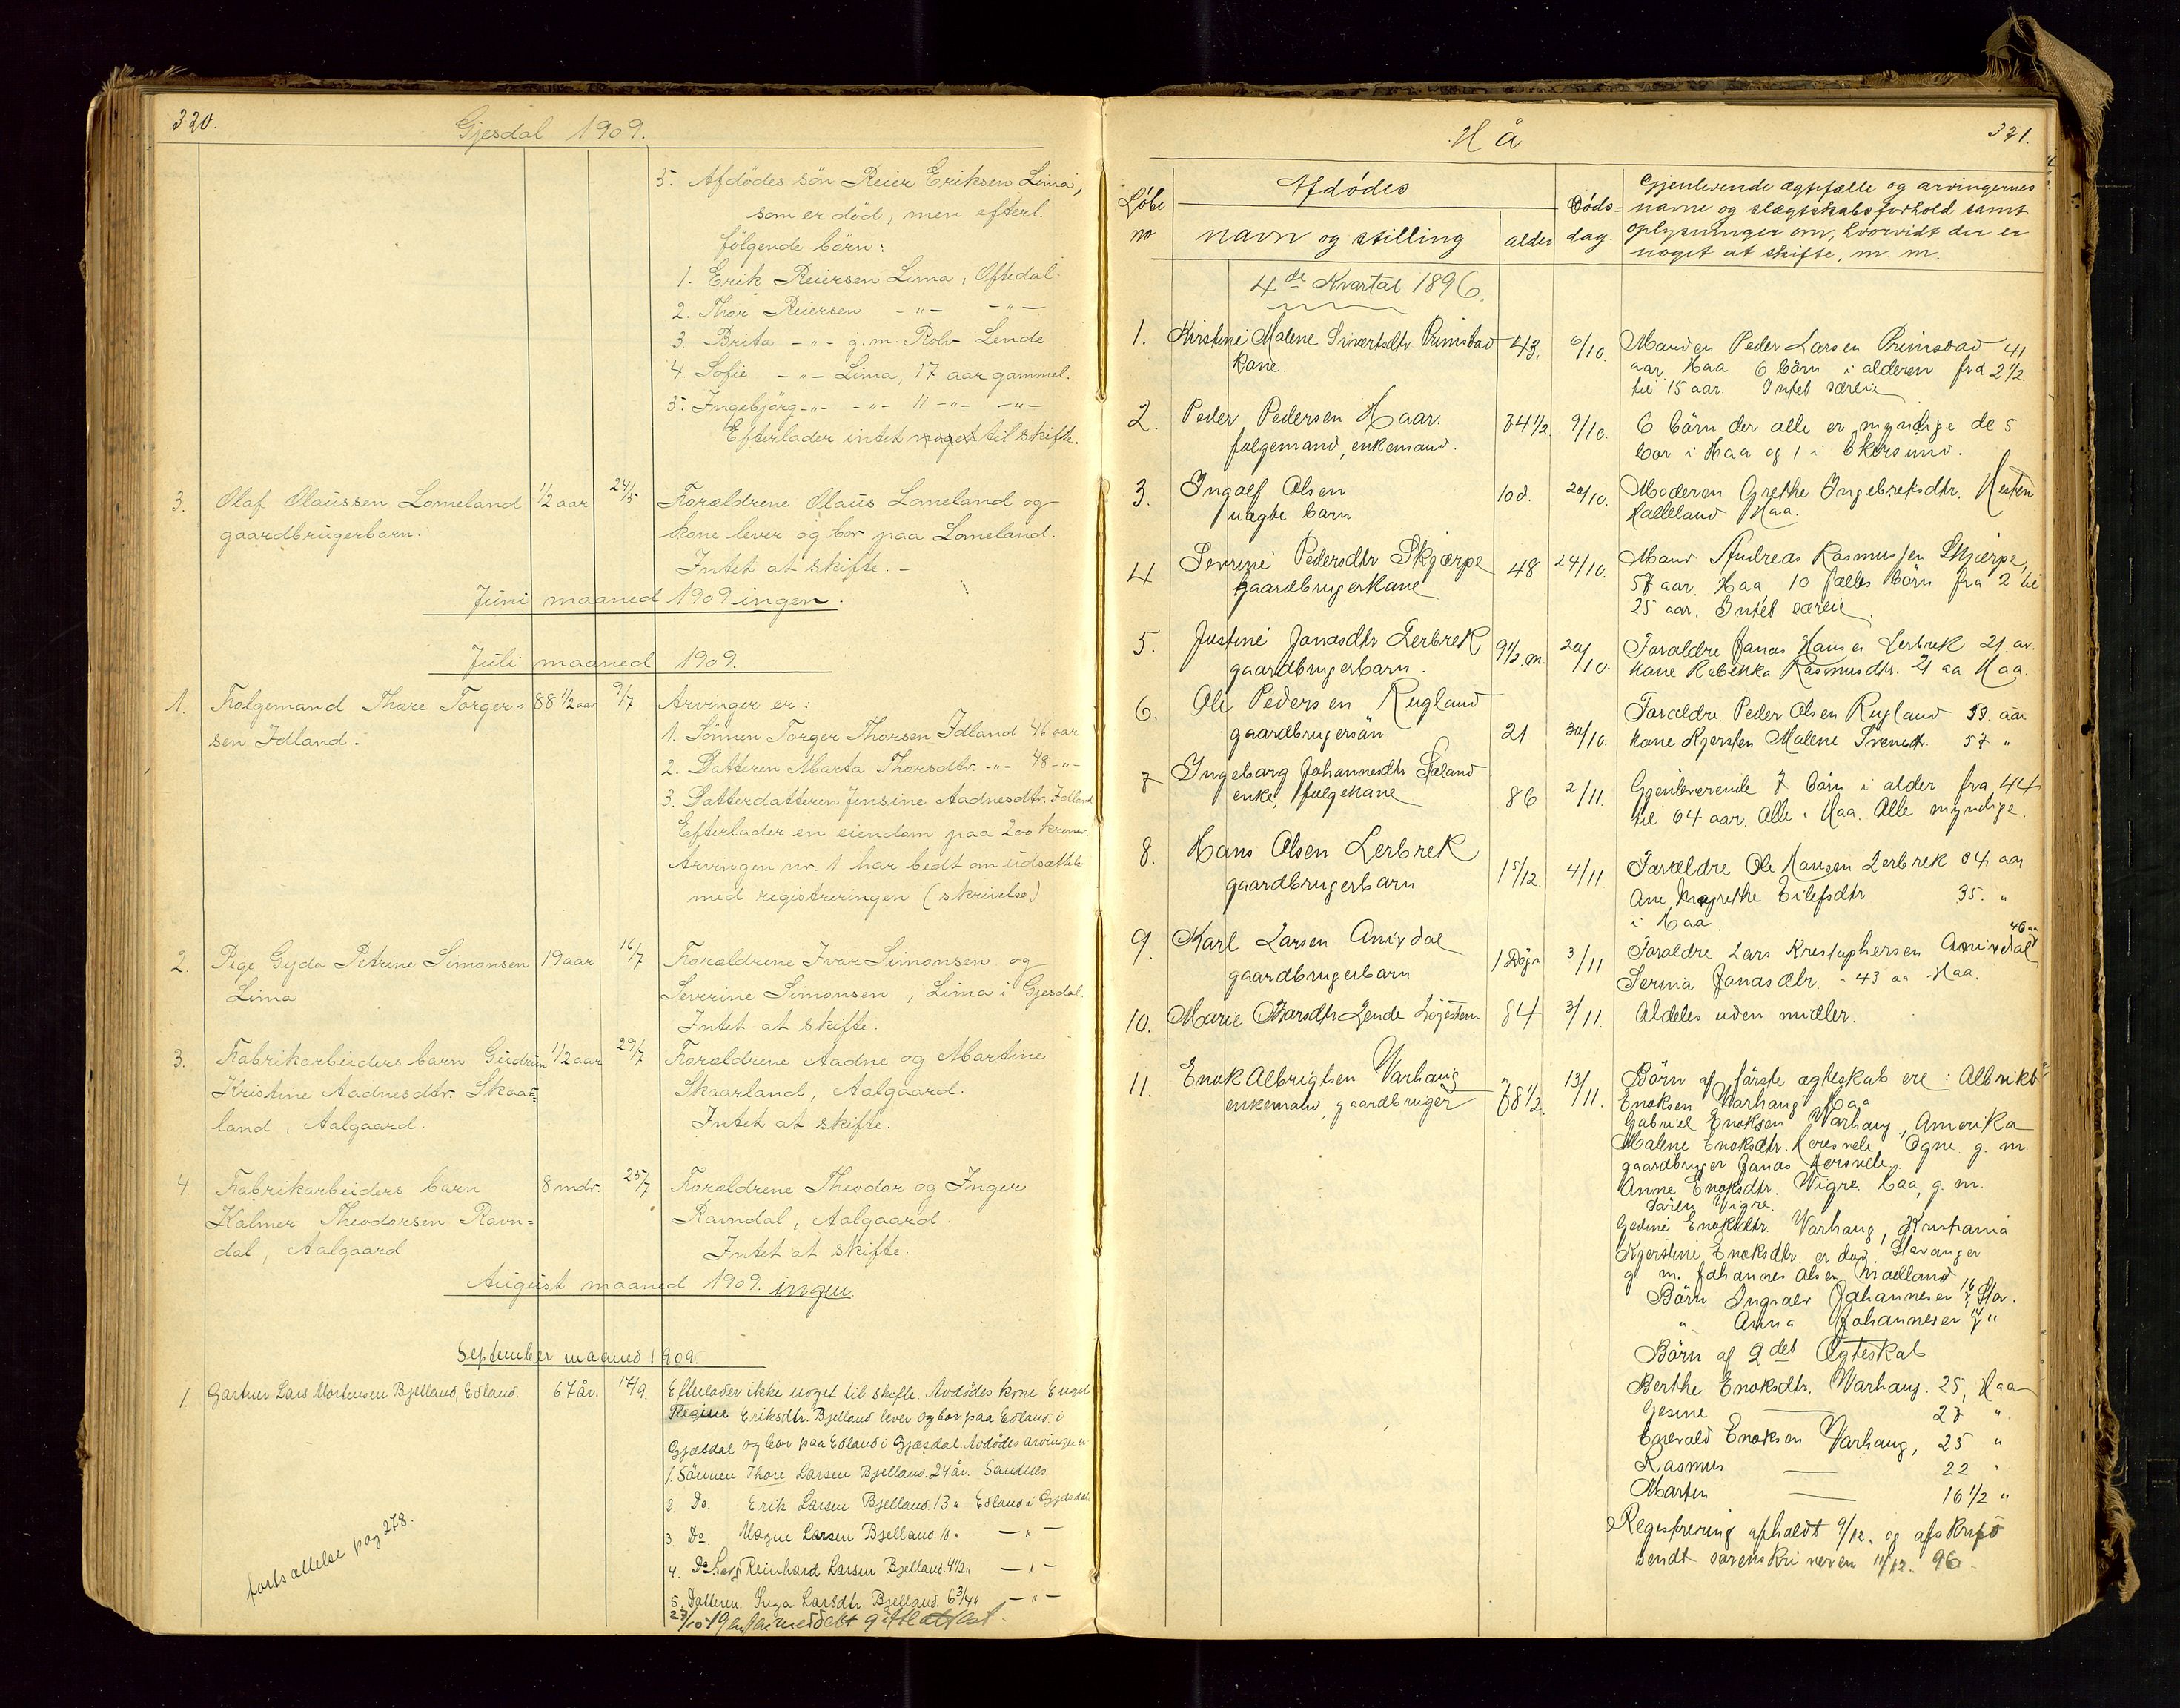 320.
Gjesdal 1909.
5. Afdödes sön Reier Eriksen Lima,
som er död, men efterl.
følgende börn:
1. Erik Reiersen Lima, Oftedal
2. Thor Reiersen -"- -"-
3. Brita -"- g.m. Rolv Lende
4. Sofie -"- Lima, 17 aar gammel.
5. Ingebjörg -"- -"- 11 -"- -"-
Efterlader intet noget til skifte.
3. Olaf Olaussen Lomeland 1/2 aar 24/5 Forældrene Olaus Lomeland og
gaardbrugerbarn. kone lever og bor paa Lomeland.
Intet at skifte. -
Juni maaned 1909 ingen.
Juli maaned 1909.
1. Folgemand Thore Torger= 88 1/2 aar 9/7 Arvinger er:
sen Idland. 1. Sönnen Torger Thorsen Idland 46 aar
2. Datteren Marta Thorsdtr. -"- 48 -"-
3. Datterdatteren Jensine Aadnesdtr. Idland
Efterlader en eiendom paa 200 kroner.
Arvingen nr. 1 har bedt om udsættelse
med registreringen (skrivelse)
2. Pige Gyda Petrine Simonsen 19 aar 16/7 Forældrene Ivar Simonsen og
Lima Severine Simonsen, Lima i Gjesdal.
Intet at skifte.
3. Fabrikarbeiders barn Gudrun 1/2 aar 29/7 Forældrene Aadne og Martine
Kristine Aadnesdtr. Skaar= Skaarland, Aalgaard.
land, Aalgaard. Intet at skifte.
4 Fabrikarbeiders barn 8 mdr. 25/7 Forældrene Theodor og Inger
Kalmer Theodorsen Ravn= Ravndal, Aalgaard.
dal, Aalgaard Intet at skifte.
August maaned 1909. ingen.
September maaned 1909.
1. Gartner Lars Mortensen Bjelland, Edland. 67 år. 17/9. Efterlader ikke noget til skifte. Avdödes kone Engel
Regine Eriksdtr. Bjelland lever og bor paa Edland i
Gjæsdal og bor paa Edland i Gjæsdal. Avdödes arvinger er.
1. Sönnen Thore Larsen Bjelland. 24 år. Sandnes.
2. Do. Erik Larsen Bjelland. 13 " Edland i Gjesdal
3. Do Magne Larsen Bjelland. 10 " - " -
4. Do Reinhard Larsen Bjelland. 4 1/2 " - " -
5. Datteren. Inga Larsdtr. Bjelland. 6 3/4 " - " -
fortsættelse pag 278.
Hå
321.
Löbe no
Afdödes
navn og stilling alder
Döds= dag.
Gjenlevende ægtefælle og arvingernes
navne og slægtskabsforhold samt
oplysninger om, hvorvidt der er
noget at skifte, m. m.
4de Kvartal 1896.
1. Kirstine Malene Sivertsdtr Primstad 43. 6/10. Manden Peder Larsen Primstad 41
Kone. aar Haa. 6 börn i alderen fra 2 1/2
til 15 aar. Intet særeie
2. Peder Pedersen Haar. 84 1/2. 9/10. 6 börn der alle er myndige de 5
folgemand, enkemand. bor i Haa og 1 i Ekersund.
3. Ingolf Olsen 10 d. 20/10. Moderen Grethe Ingebretsdtr.
uægte barn Haa.
4 Severine Pedersdtr Skjærpe 48 24/10. Mand Andreas Rasmussen Skjerpe,
gaardbrugerkone 57 aar. Haa 10 fælles börn fra 2 til
25 aar. Intet særeie.
5. Justine Jonasdtr Lerbrek 9 1/2. m. 20/10. Forældre Jonas Hansen Lerbrek 21. aar.
gaardbrugerbarn. Kone Rebekka Rasmusdtr. 21 aa. Haa.
6. Ole Pedersen Rugland 21 30/10. Forældre Peder Olsen Rugland 59. aar
gaardbrugersön Kone Kjersten Malene Svendtr. 57 "
7 Ingeborg Johannesdtr Sæland 86 2/11. Gjenlevende 7 börn i alder fra 44
enke, folgekone til 64 aar. Alle i Haa. Alle myndige.
8. Hans Olsen Lerbrek 15/12. 4/11 Forældre Ole Hansen Lerbrek 34 aar
gaardbrugerbarn Ane Magrethe Eilefsdtr 35. "
i Haa.
9. Karl Larsen Anisdal 1 Dögn 3/11 Forældre Lars Kristophersen Anisdal 46 aa
gaardbrugerbarn Serina Jonasdtr. - 43 aa Haa.
10. Marie Lende Lægdslem 84 3/11. Aldeles uden midler.
11. Enok Albrigtsen Varhaug 68 1/2. 13/11. Börn af förste ægteskab ere: Albrikt
enkemand, gaardbruger Enoksen Varhaug Haa
Gabriel Enoksen Varhaug, Amerika
Malene Enoksdtr. Hersvele Ogne g. m.
gaardbruger Jonas Hersvele.
Anne Enoksdtr. Vigre. Haa, g. m.
Sören Vigre.
Gedine Enoksdtr. Varhaug, Kristiania
Kjerstine Enoksdtr. er död, Stavanger
g. m. Johannes Olsen Madland
Börn Ingvald Johannesen 16 Stav.
" Anna Johannesen 14 "
Börn af 2det Ægteskab
Berthe Enoksdtr. Varhaug. 25, Haa
Gesine — 27 "
Enevald Enoksen Varhaug, 25 "
Rasmus — 22 "
Marten — 16 1/2 "
Registrering afholdt 9/12. og afskrift
sendt sorenskriveren 11/12. 96.